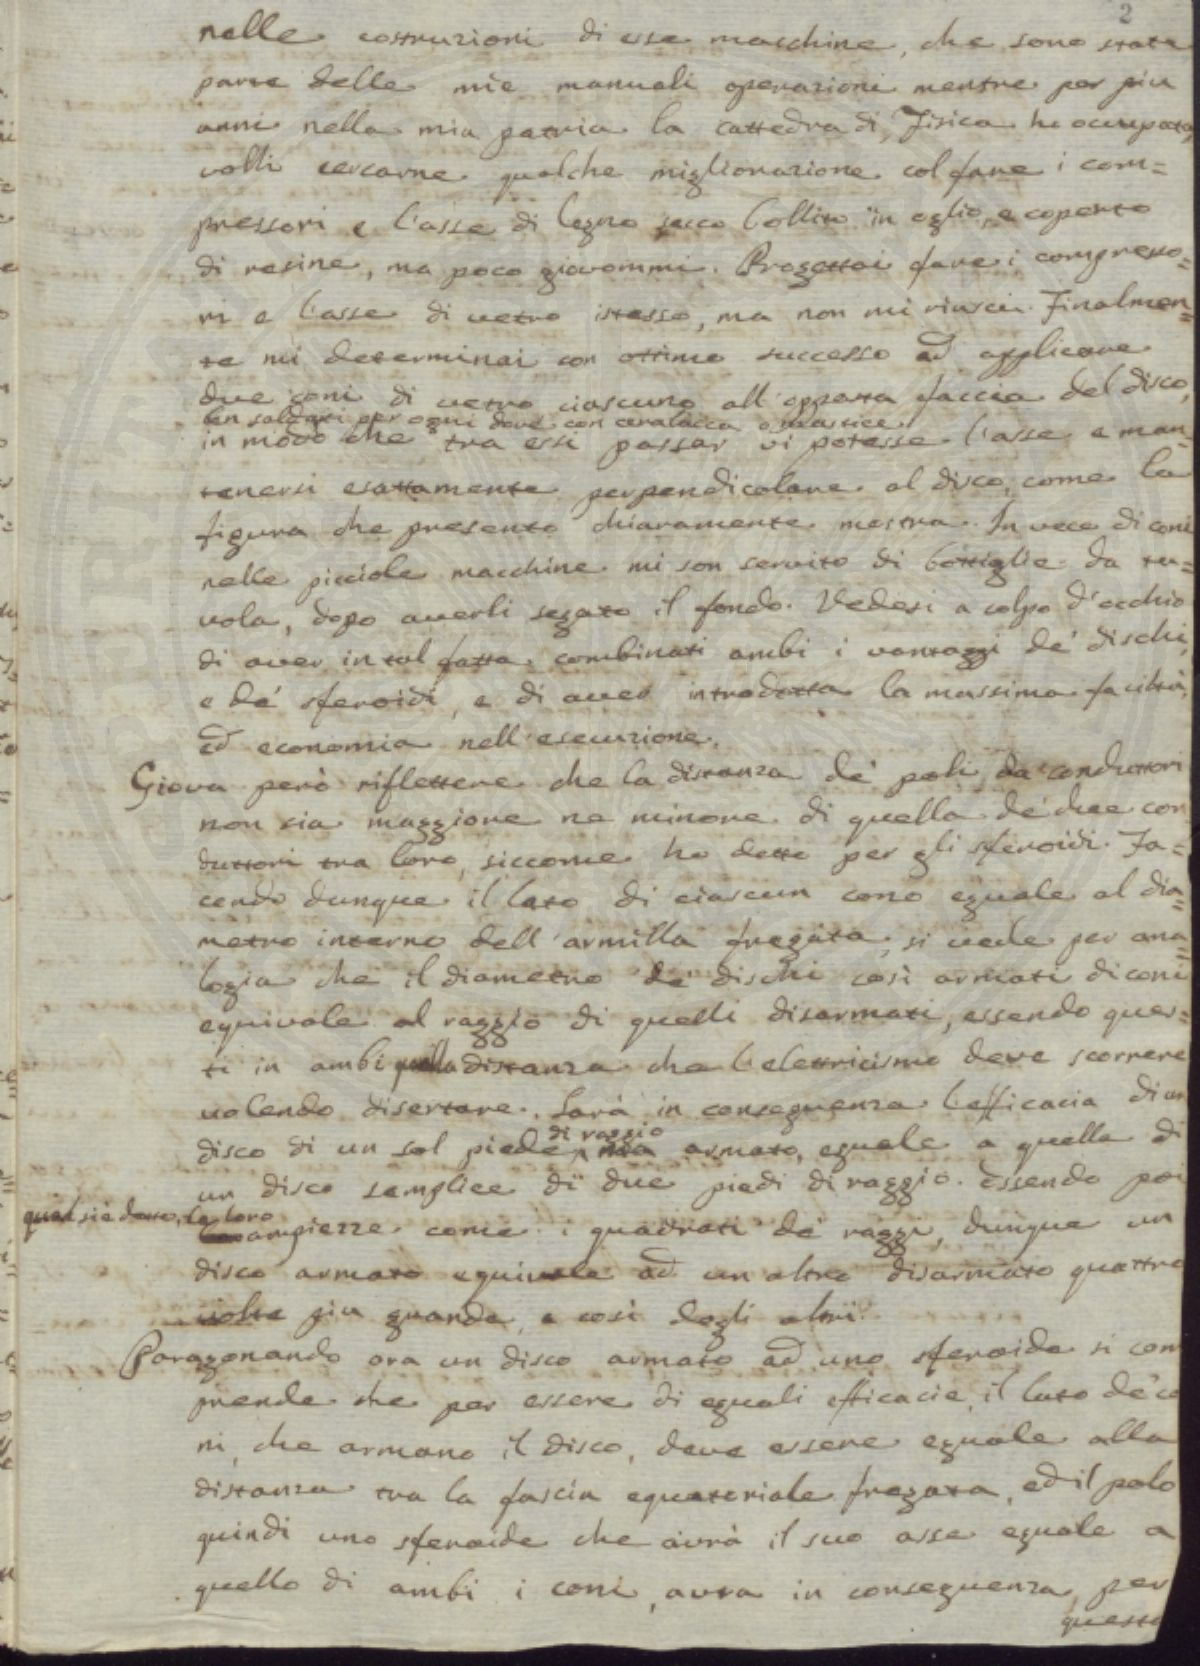 2
nelle costruzioni di esse macchine, che sono state
parte delle mie manuali operazioni mentre per piu
anni nella mia patria la cattedra di Fisica ho occupata,
volli cercarne qualche migliorazione col fare i com=
pressori e l'asse di legno secco bollito in oglio, e coperto
di resine, ma poco giovommi. Progettai fare i compresso=
ri e l'asse di vetro istesso, ma non mi riusci. Finalmen=
te mi determinai con ottimo successo ad applicare
due coni di vetro ciascuno all'opposta faccia del disco,
ben saldati per ogni dove con ceralacca o mastice
in modo che tra essi passar vi potesse l'asse e man=
tenersi esattamente perpendicolare al disco, come la
figura che presento chiaramente mostra. In vece di coni
nelle picciole macchine mi son servito di bottiglie da ta=
vola, dopo averli segato il fondo. Vedesi a colpo d'occhio
di aver in tal fatta combinati ambi i vantaggi de' dischi,
e de' sferoidi, e di aver introdotta la massima faciltà,
ed economia nell'esecuzione.
Giova però riflettere che la distanza de' poli da' conduttori
non sia maggiore ne minore di quella de' due con
duttori tra loro, siccome ho detto per gli sferoidi. Fa=
cendo dunque il lato di ciascun cono eguale al dia=
metro interno dell'armilla fregata, si vede per ana=
logia che il diametro de' dischi così armati di coni
equivale al raggio di quelli disarmati, essendo ques=
ti in ambi quella distanza che l'elettricismo deve scorrere
volendo disertare. Sarà in conseguenza l'efficacia di un
di raggio
disco di un sol piede armato, eguale a quella di
un disco semplice di due piedi di raggio. Essendo poi
qual sie detto, la loro
ampiezze come i quadrati de' raggi, dunque un
disco armato equivale ad un altro disarmato quattro
volte piu grande, e così degli altri.
Paragonando ora un disco armato ad uno sferoide si com
prende che per essere di eguali efficacie, il lato de' co
ni, che armano il disco, deve essere eguale alla
distanza tra la fascia equatoriale fregata, ed il polo
quindi uno sferoide che avrà il suo asse eguale a
quello di ambi i coni, avra in conseguenza per
questo